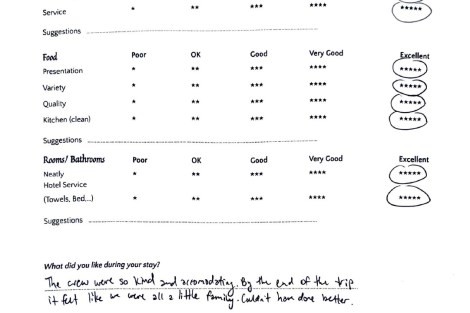 Service * ** *** **** *****
Suggestions
Food Poor OK Good Very Good Excellent
Presentation * ** *** **** *****
Variety * ** *** **** *****
Quality * ** *** **** *****
Kitchen (clean) * ** *** **** *****
Suggestions
Rooms/ Bathrooms Poor OK Good Very Good Excellent
Neatly * ** *** **** *****
Hotel Service
(Towels, Bed...) * ** *** **** *****
Suggestions
What did you like during your stay?
The crew were so kind and accomodating. By the end of the trip
it felt like we were all a little family. Couldn't have done better.